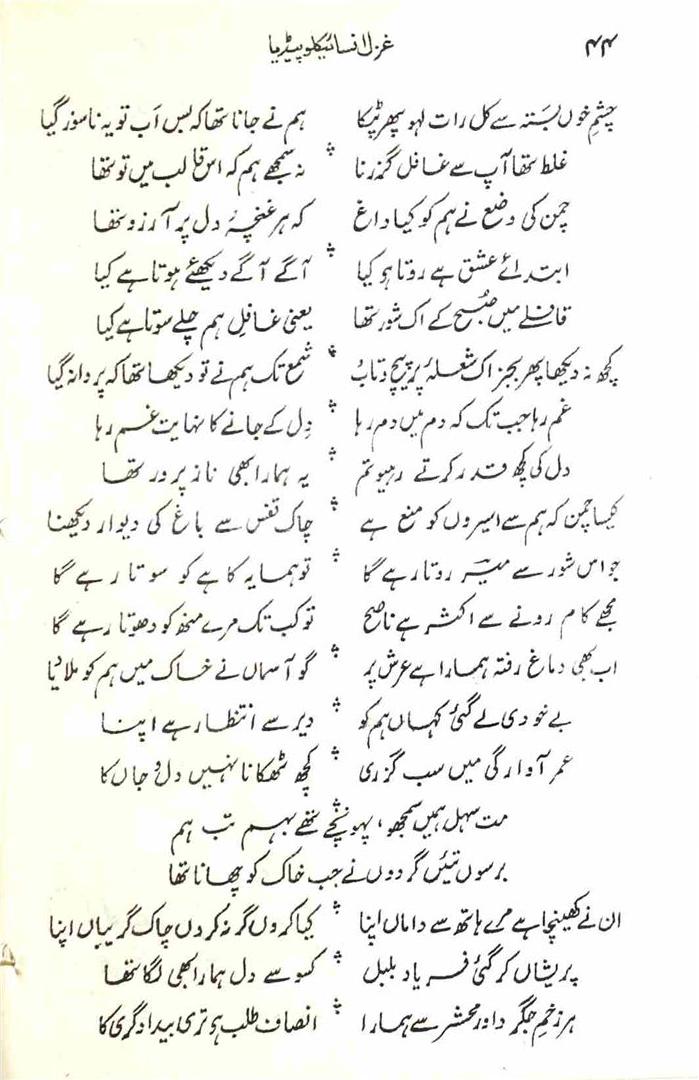 ۴۴ غزل انسائیکلوپیڈیا
چشمِ خوں بستہ سے کل رات لہو پھر ٹپکا ہم نے جانا تھا کہ بس اَب تو یہ ناسور گیا
غلط تھا آپ سے غافل گزرنا نہ سمجھے ہم کہ اس قالب میں تو تھا
چمن کی وضع نے ہم کو کیا داغ کہ ہر غنچۂ دل پر آرزو تھا
ابتدائے عشق ہے روتا ہو کیا آگے آگے دیکھئے ہوتا ہے کیا
قافلے میں صُبح کے اک شور تھا یعنی غافل ہم چلے سوتا ہے کیا
کچھ نہ دیکھا پھر بجز اک شعلۂ پر پیچ و تاب شمع تک ہم نے تو دیکھا تھا کہ پروانہ گیا
غم رہا جب تک کہ دم میں دم رہا دِل کے جانے کا نہایت غم رہا
دل کی کچھ قدر کرتے رہیو تم یہ ہمارا بھی ناز پرور تھا
کیسا چمن کہ ہم سے اسیروں کو منع ہے چاکِ قفس سے باغ کی دیوار دیکھنا
جو اس شور سے میرؔ روتا رہے گا تو ہمسایہ کاہے کو سوتا رہے گا
مجھے کام رونے سے اکثر ہے ناصح تو کب تک مرے منھ کو دھوتا رہے گا
اب بھی دماغ رفتہ ہمارا ہے عرش پر گو آسماں نے خاک میں ہم کو ملا دیا
بے خودی لے گئی کہاں ہم کو دیر سے انتظار ہے اپنا
عمر آوارگی میں سب گزری کچھ ٹھکانا نہیں دل و جاں کا
مت سہل ہمیں سمجھو، پہونچے تھے بہم تب ہم
برسوں تئیں گردوں نے جب خاک کو چھانا تھا
ان نے کھینچا ہے مرے ہاتھ سے داماں اپنا کیا کروں گر نہ کروں چاک گریباں اپنا
پریشاں کر گئی فریاد بلبل کسو سے دل ہمارا بھی لگا تھا
ہر زخمِ جگر داورِ محشر سے ہمارا انصاف طلب ہے تری بیداد گری کا